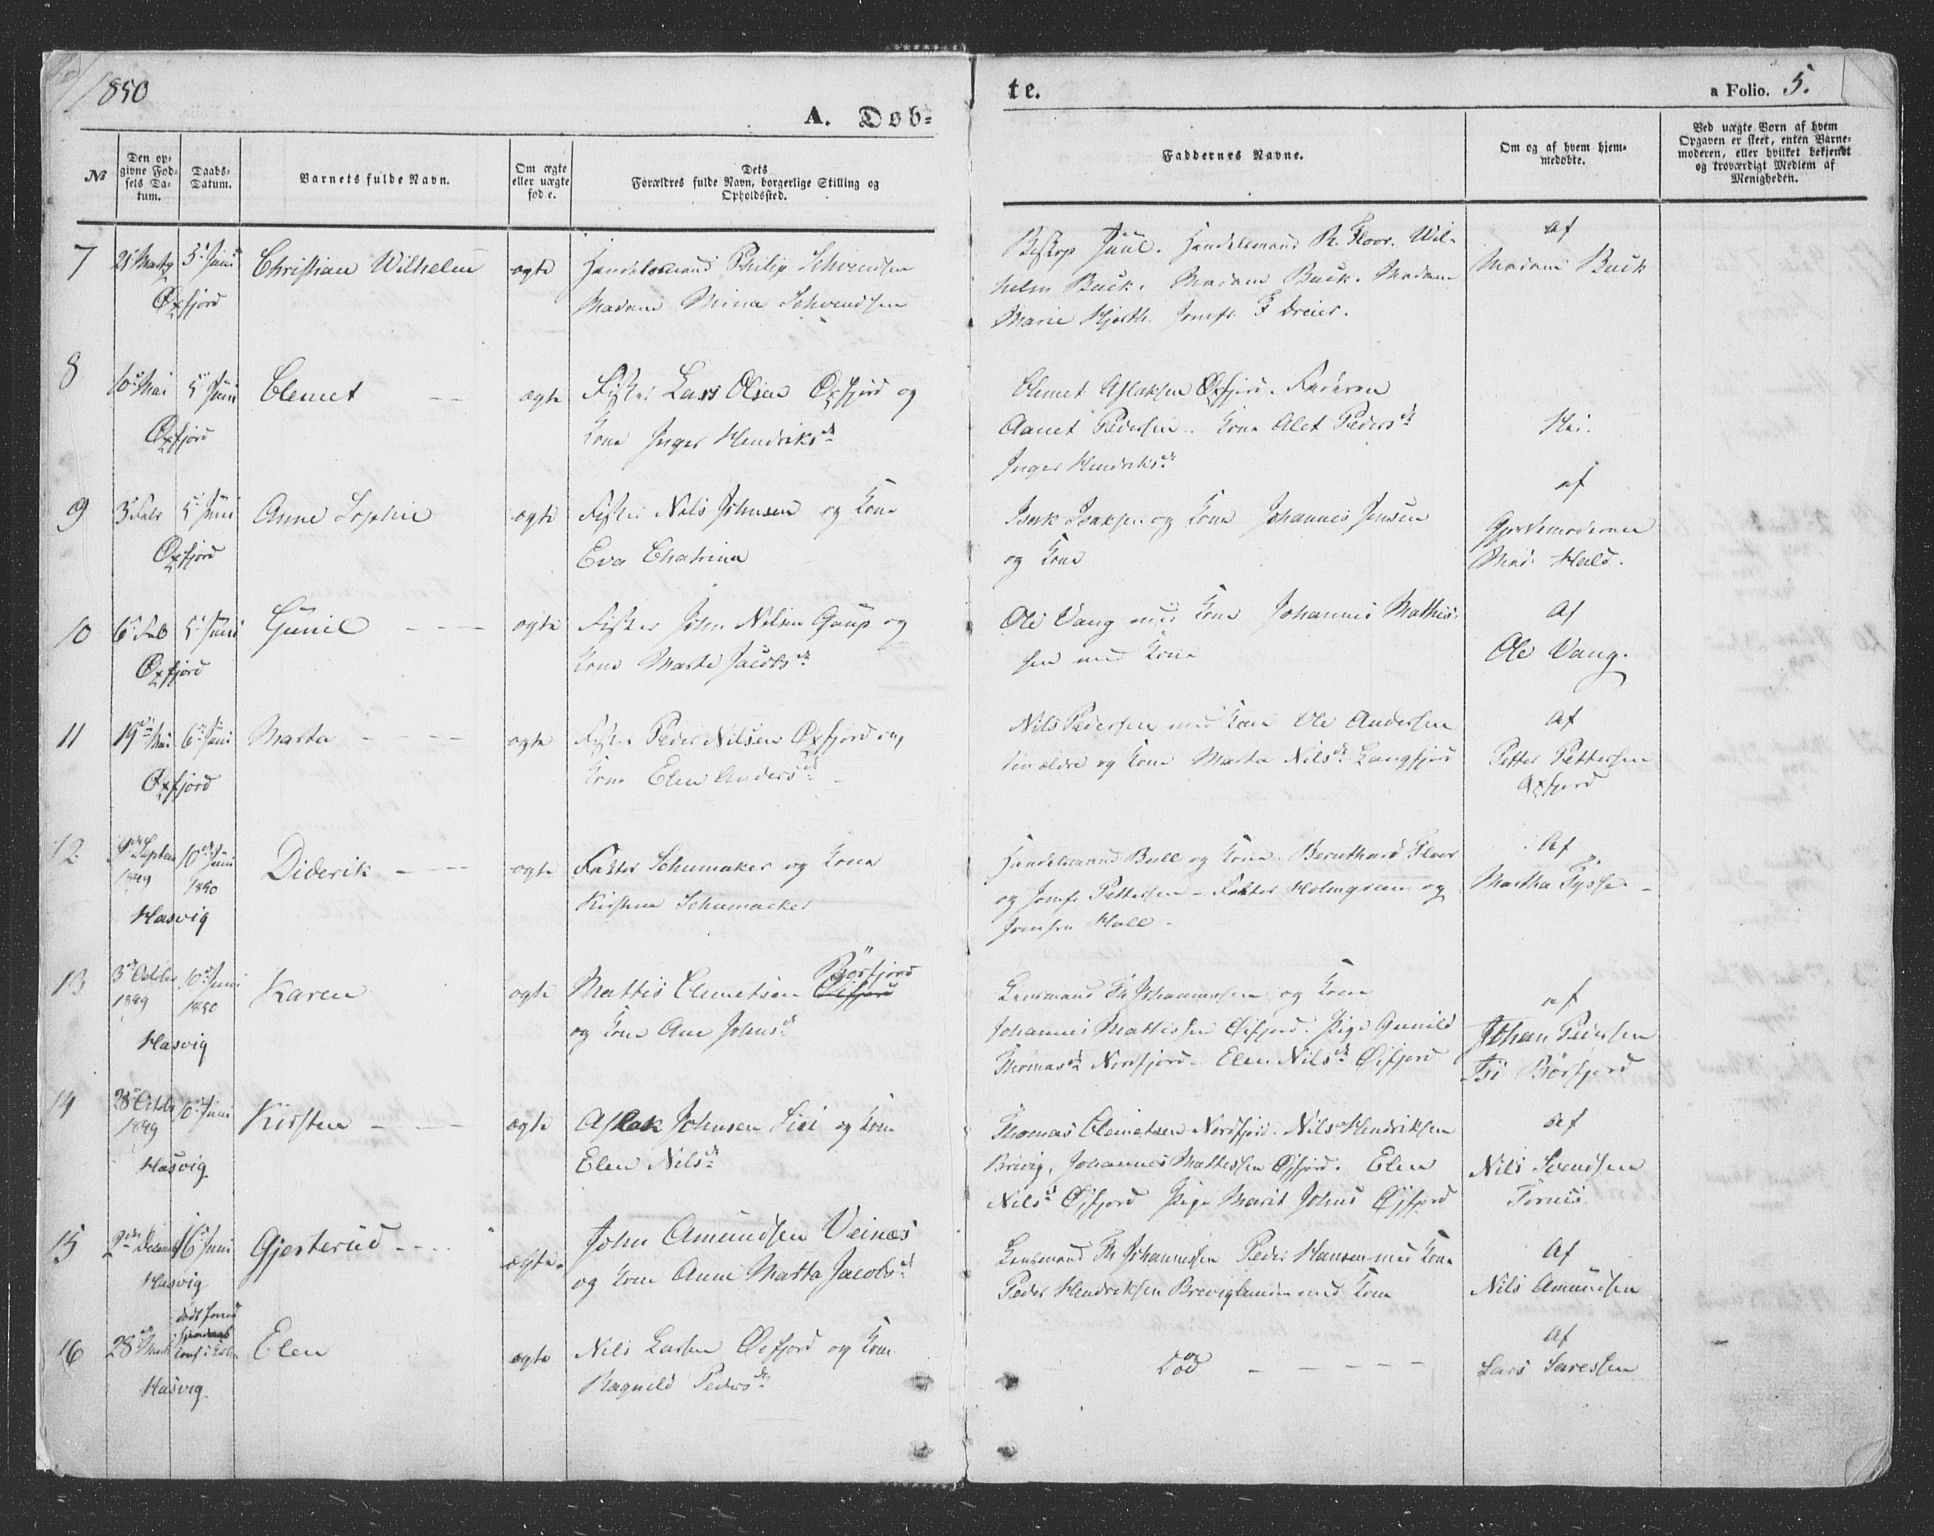 1850
A. Døb-
te.
a Folio. 5.
№
Den op-
givne Fød-
sels Da-
tum.
Daabs-
Datum.
Barnets fulde Navn.
Om ægte
eller uægte
født.
Dets
Forældres fulde Navn, borgerlige Stilling og
Opholdssted.
Faddernes Navne.
Om og af hvem hjem-
medøbt.
Ved uægte Børn af hvem
Opgaven er skeet, enten Barne-
moderen, eller hvilket bekjendt
og troværdigt Medlem af
Menigheden.
7
5 Juni
Christian Wilhelm
ægte
Handelsmand Philip Schvendsen
Madam Mina Schvendsen
Øxfjord
Biskop Juul. Handelsmand R. Floor. Wil-
helm Buck. Madam Buck. Madam
Marie Hjelth. Jomfr. F Dreier.
af
Madam Buck
8
10 Mai
5 Juni
Clemet
ægte
Fisker Lars Olsen Øxfjord og
Kone Inger Hendriksd
Øxfjord
Clemet Aslaksen Øxfjord. Faderen
Pedersen. Kone Alet Pedersd
Inger Hendriksd
Nei.
9
3 Febr
5 Juni
Anne Sophie
ægte
Fisker Nils Johnsen og Kone
Eva Chatrina
Øxfjord
Isak Isaksen og Kone Johannes Jensen
og Kone
af
Gjordemoderen
Mad. Hald.
10
6 Feb
5 Juni
Gunil
ægte
Fisker John Nilsen Gaup og
Kone Marte Jacobsd
Øxfjord
Ole Vang med Kone Johannes Mathis-
sen med Kone
Af
Ole Vang.
11
19 Mai
6 Juni
Marta
ægte
Fisker Peder Nilsen Øxfjord og
Kone Elen Andersd
Øxfjord
Nils Pedersen med Kone Ole Andersen
og Kone Marta Nilsd Langfjord
Af
Petter Pettersen
Øxfjord
12
Septem
1849
10 Juni
1850
Diderik
ægte
Faktor Schumaker og Kone
Kirstine Schumacker
Hasvig
Handelsmand Bull og Kone. Bernthard Floor
og Jomfr Pettersen - Faktor Holmgreen og
Hall -
Af
Martha Fysse
13
3 October
1849
10 Juni
1850
Karen
ægte
Mattis Clemetsen Øifjord Börfjord
og Kone Ane Johnsd
Hasvig
Lensmand Th Johannessen og Kone
Johannes Mattissen Øifjord. Pige Gunild
Thomasd Nordfjord - Elen Nilsd Øifjord
af
Johan Pedersen
Börfjord
14
28 Octbr
1849
10 Juni
Kirsten
ægte
Aslak Johnsen og Kone
Elen Nilsd
Hasvig
Thomas Clemetsen Nordfjord. Nils Hendriksen
Brevig, Johannes Mattissen Øifjord. Elen
Nilsd Øifjord Pige Marit Johns Øifjord
af
Nils Svendsen
15
2 Decemb
16 Juni
Gjesterud
ægte.
John Amundsen Veines
og Kone Anne Marta Jacobsd
Hasvig
Lensmand Th Johannessen Peder Hansen med Kone
Peder Hendriksen med Kone
Af
Nils Amundsen
16
28
Elen
ægte
Nils Larsen Øifjord og Kone
Ragnild Pedersd
Hasvig
Død
Af
Lars